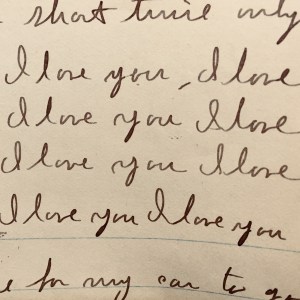 short time only
I love you, I love
I love you I love
I love you I love
I love you I love you
for my car to